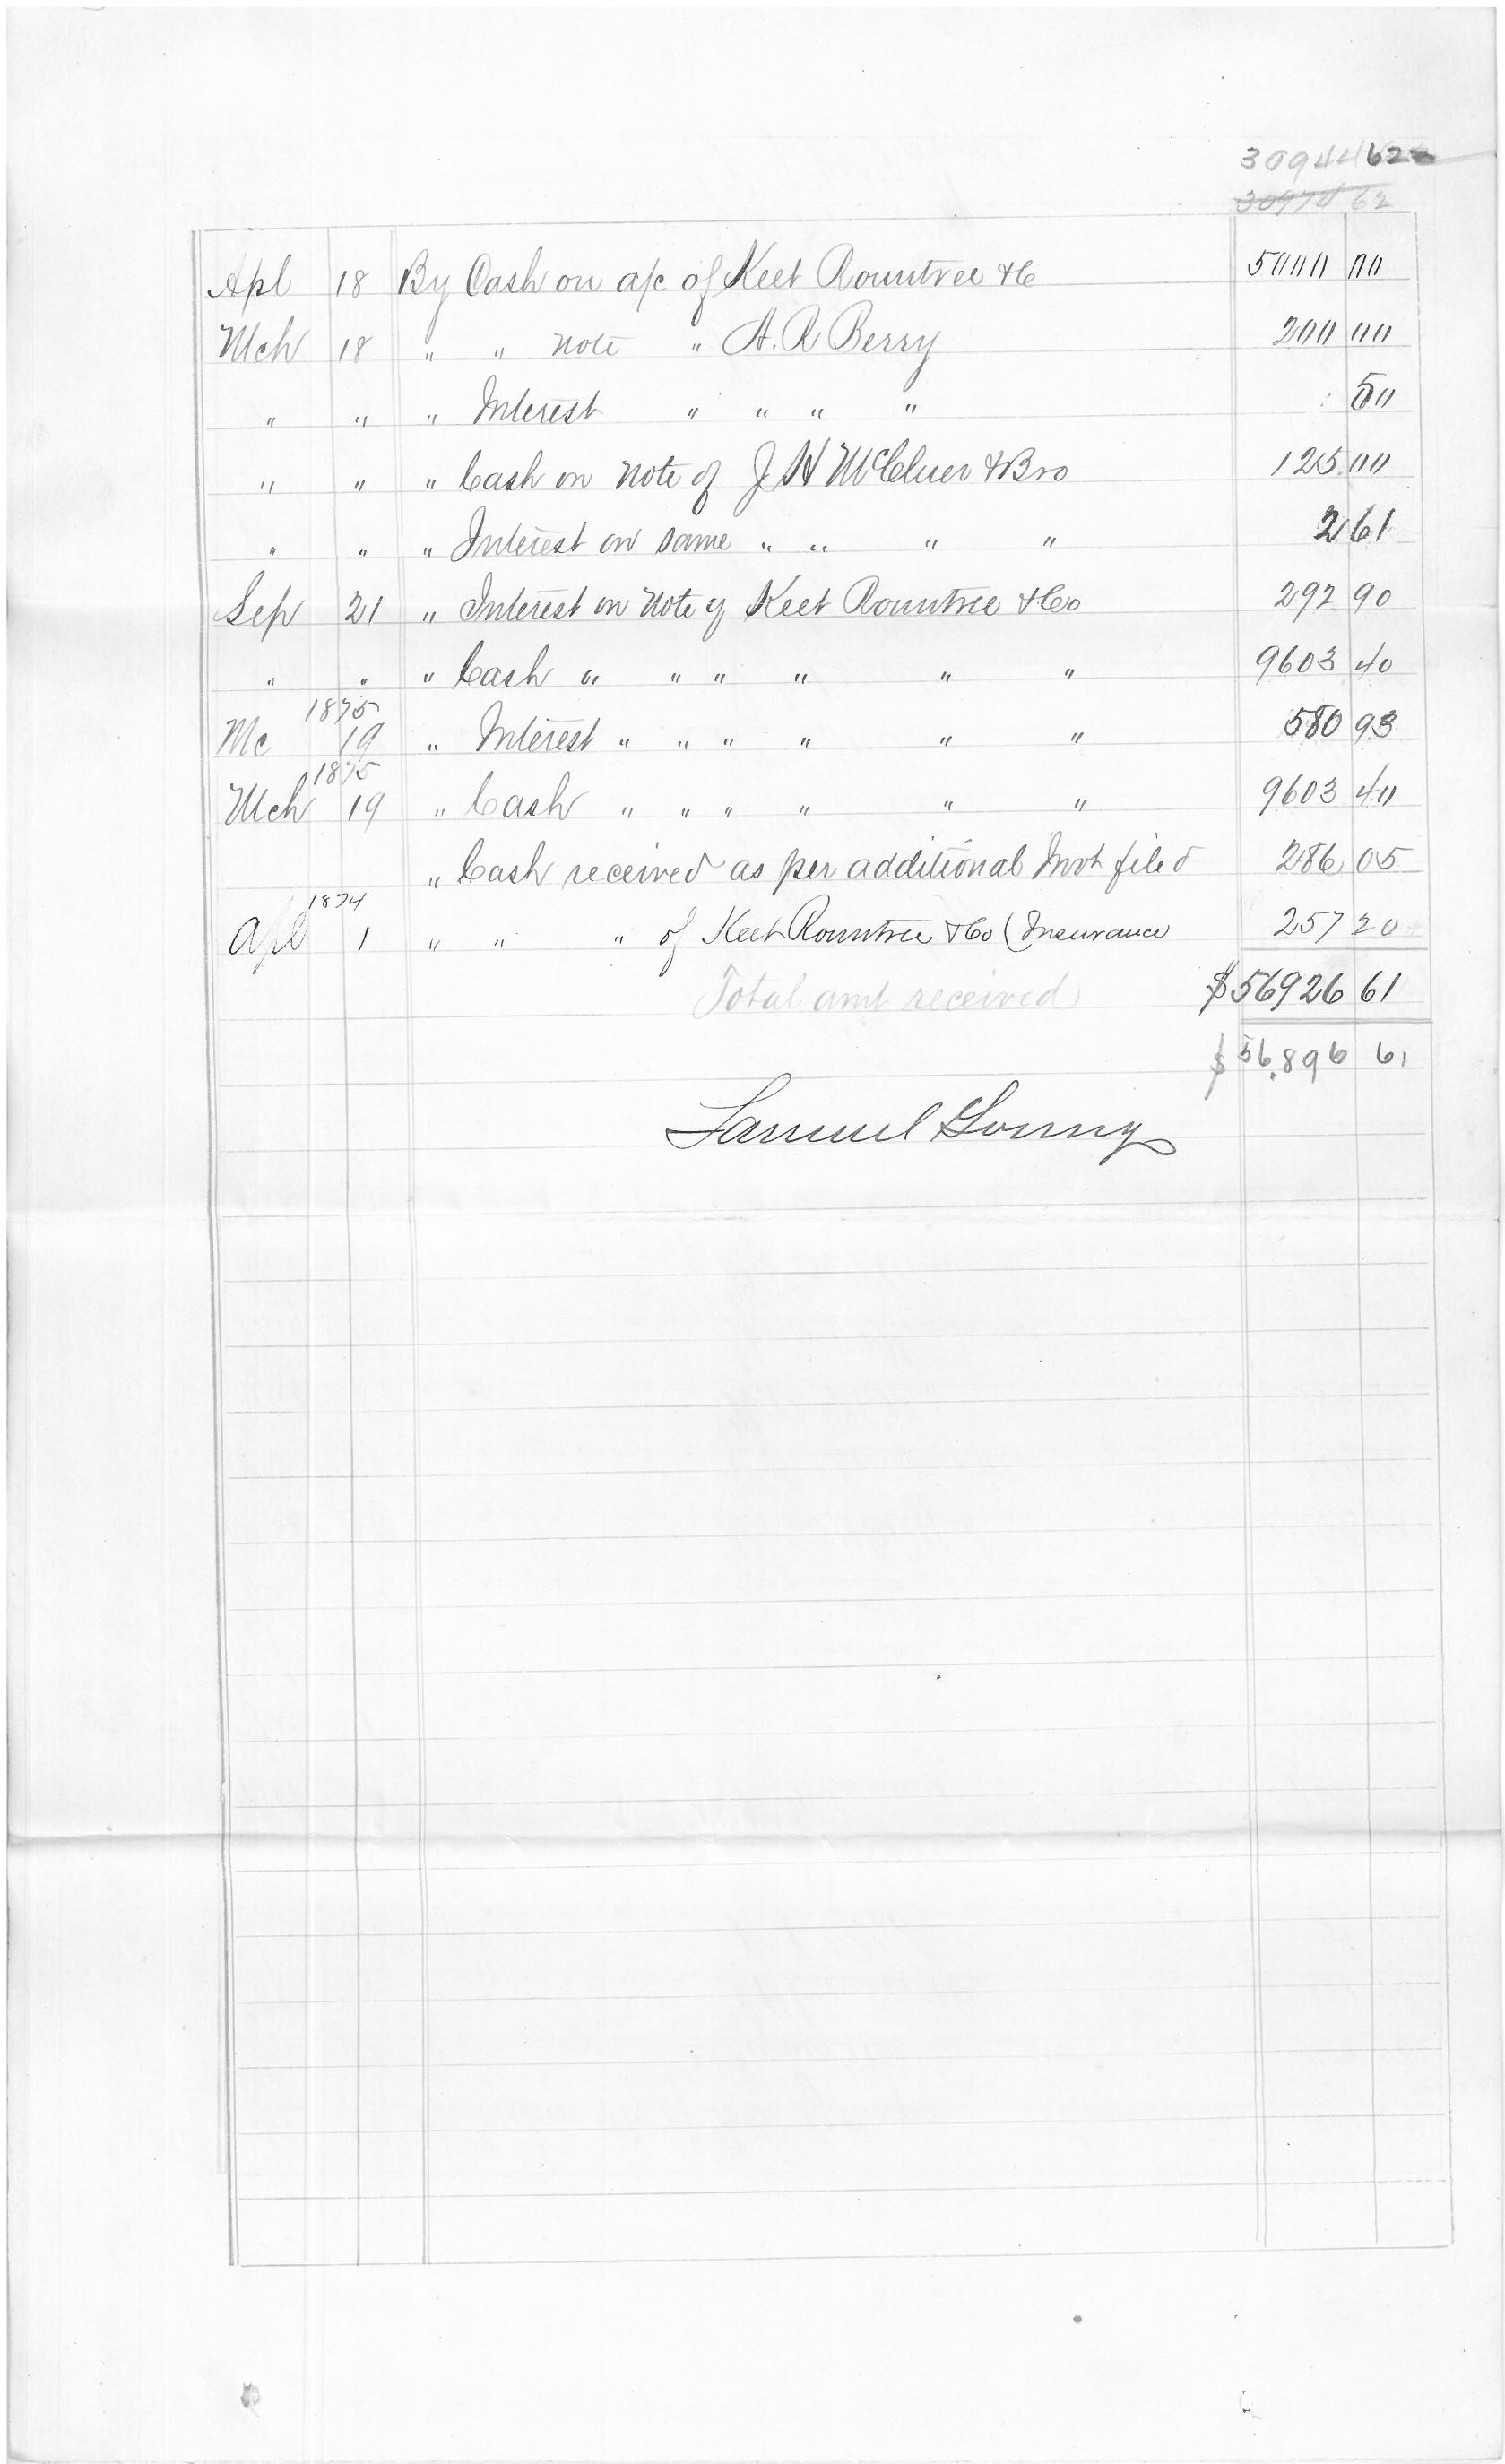 30944 62
30974 62
Apl 18 By Cash on a/c of Keet Rountree & C 5000 00
Mch 18 " " note " A. R Berry 200 00
" " " Interest " " " " 50
" " " Cash on note of J H McCluer & Bro 125 00
" " " Interest on same " " " " 2 61
Sep 21 " Interest on note of Keet Rountree & Co 292 90
" " " Cash " " " " " " 9603 40
1875
Mc 19 " Interest " " " " " " 580 93
1875
Mch 19 " Cash " " " " " " 9603 40
" Cash received as per additional Invt filed 286 05
1874
Apl 1 " " " of Keet Rountree & Co (Insurance 257 20
Total amt received $56926 61
$56,896 61
Samuel